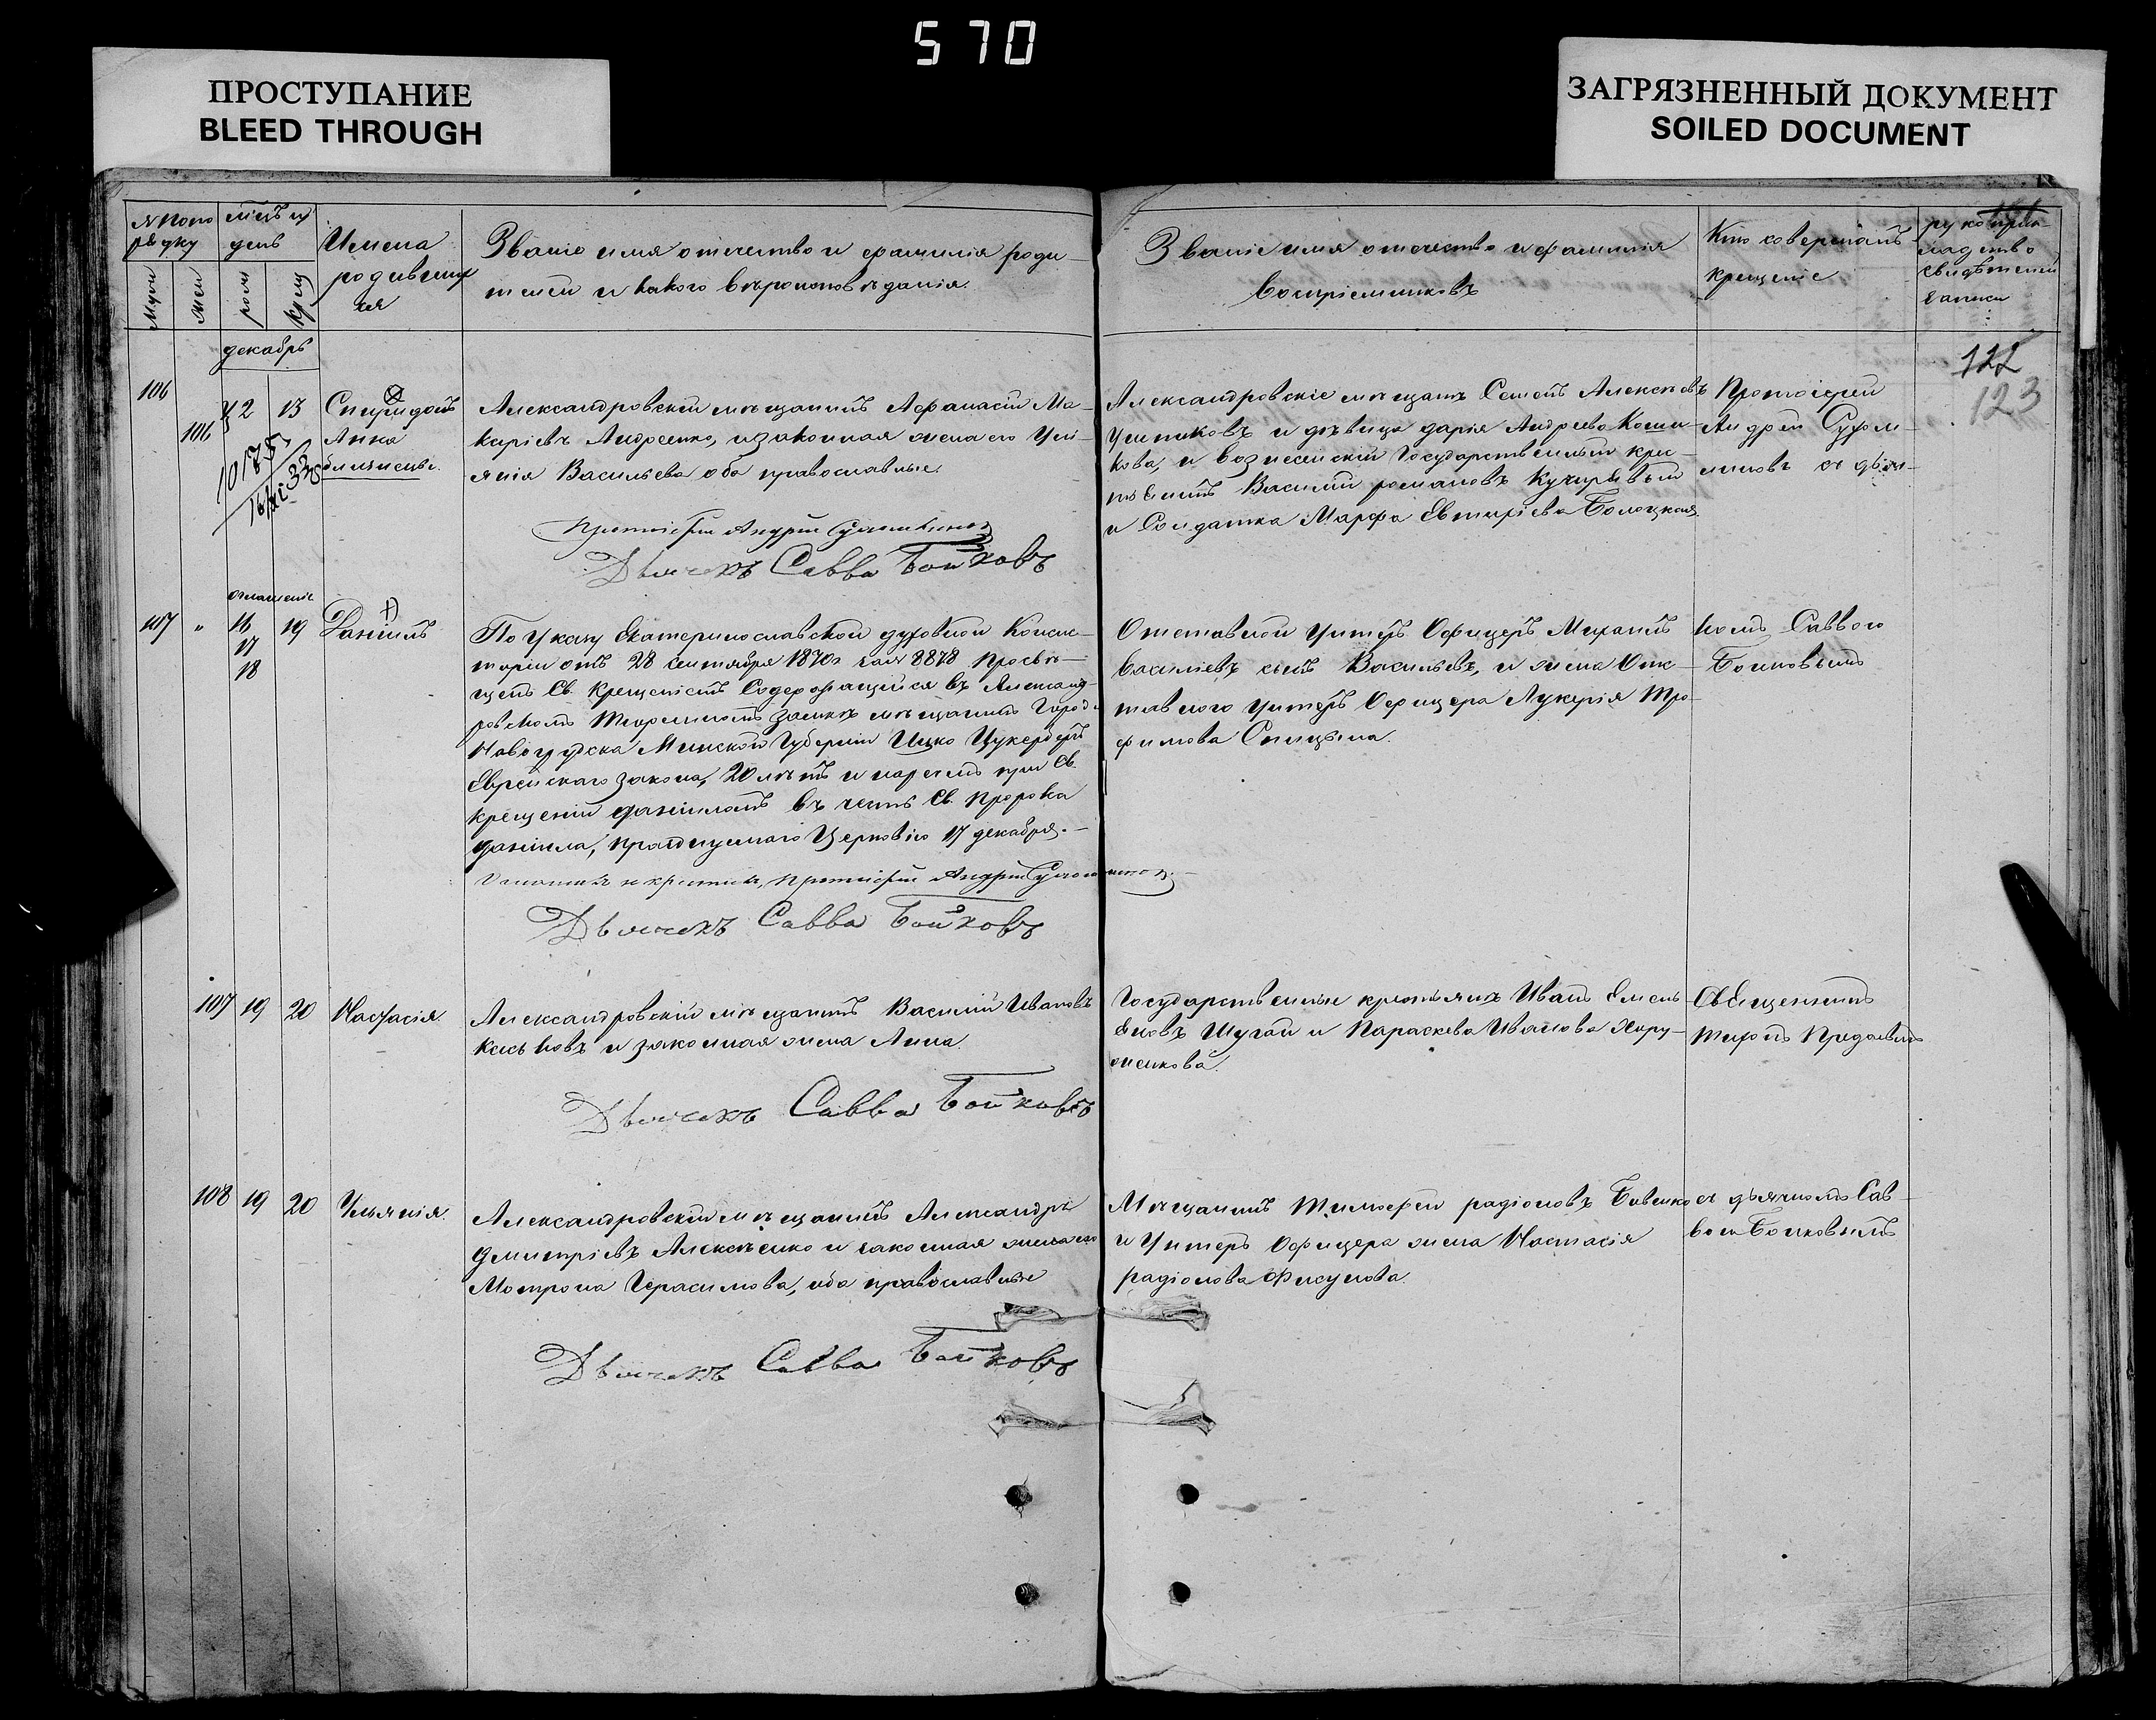 570
ПРОСТУПАНИЕ
BLEED THROUGH
ЗАГРЯЗНЕННЫЙ ДОКУМЕНТ
SOILED DOCUMENT
№ по по
рядку
мцъ и
день
Имена
родивших
ся
Званіе имя отечество и фамилія роди-
телей и какого вѣроисповѣданія
Муж
Жен
рож
крещ
Званіе имя отечество и фамилія
Воспріемниковъ
Кто совершалъ
крещеніе
рукопри-
кладство
свидѣтелей
записи
122
123
декабрь
106
106
12
13
Спиридонъ
Анна
близнецы.
Александровскій мѣщанинъ Афанасій Ма-
каріевъ Андросенко, и законная жена его Улі-
янія Васильева оба православные
Протоіерей Андрей
Дьячекъ Савва Бойковъ
Александровскіе мѣщане Семенъ Алексѣевъ
и дѣвица Дарія Андреева Коши-
кова, и вознесенскій Государственный крес-
тьянинъ Василий романовъ
и Солдатка Марфа
Протоіерей
Андрей Сухом-
линовъ съ дьяч-
107
"
оглашеніе
16
17
18
19
Даніилъ
По указу Екатеринославской духовной Консис-
торіи отъ 28 сентября 1870 г за № 8878 просвѣ-
щенъ Св. Крещеніемъ Содержащийся въ Александ-
ровскомъ тюремномъ замкѣ мѣщанинъ Города
Новогрудска Минской Губерніи Ицко Цукербергъ
Еврейскаго закона, 20 лѣтъ и нареченъ при Св.
крещеніи Даніиломъ въ честь Св. Пророка
Даніила, празднуемаго Церковію 17 декабря. —
Протоіерей Андрей
Дьячекъ Савва Бойковъ
Отставной Унтеръ Офицеръ Михаилъ
Василіевъ сынъ Васильевъ, и жена Отс-
тавного Унтеръ Офицера Лукерія Тро-
фимова Спицына.
комъ Саввою
Бойковымъ
107
19
20
Настасія.
Александровскій мѣщанинъ Василій Ивановъ
и законная жена Анна.
Дьячекъ Савва Бойковъ
Государственные крестьяне Иванъ Емель-
яновъ Шугай и Параскева Иванова Хару-
женкова.
Священникъ
108
19
20
Ульянія.
Александровскій мѣщанинъ Александръ
Дмитріевъ Алексѣенко и законная жена его
Мотрона Герасимова, оба православные
Дьячекъ Савва Бойковъ
Мѣщанинъ Тимофей радіоновъ Бабенко
и Унтеръ Офицера жена Настасія
радіонова Фисунова.
съ дьячкомъ Сав-
вою Бойковымъ